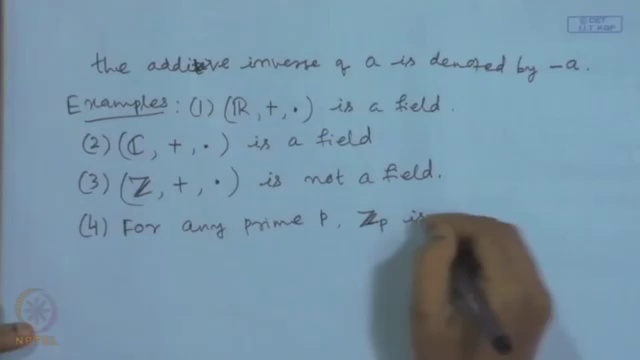 © CET
I.I.T. KGP
the additive inverse of a is denoted by -a.
Examples: (1) (ℝ, +, ·) is a field.
(2) (ℂ, +, ·) is a field
(3) (ℤ, +, ·) is not a field.
(4) For any prime p, ℤp is
NPTEL